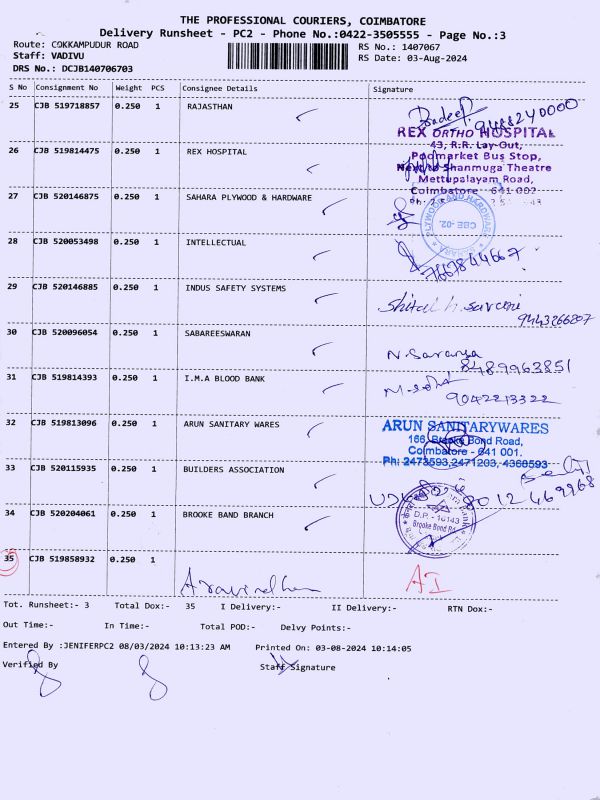 THE PROFESSIONAL COURIERS, COIMBATORE
Delivery Runsheet - PC2 - Phone No.:0422-3505555 - Page No.:3
Route: COKKAMPUDUR ROAD
RS No.: 1407067
Staff: VADIVU
RS Date: 03-Aug-2024
DRS No.: DCJB140706703
S No Consignment No Weight PCS Consignee Details Signature
25 CJB 519718857 0.250 1 RAJASTHAN
REX ORTHO HOSPITAL
43, R.R. Lay-Out,
26 CJB 519814475 0.250 1 REX HOSPITAL
Poomarket Bus Stop,
Next to Shanmuga Theatre
Mettupalayam Road,
Coimbatore - 641 002
27 CJB 520146875 0.250 1 SAHARA PLYWOOD & HARDWARE
SAHARA PLYWOOD AND HARDWARE
CBE-02.
28 CJB 520053498 0.250 1 INTELLECTUAL
7667844667
29 CJB 520146885 0.250 1 INDUS SAFETY SYSTEMS
9443266807
30 CJB 520096054 0.250 1 SABAREESWARAN
N. Saranya
8489963851
31 CJB 519814393 0.250 1 I.M.A BLOOD BANK
9042213322
32 CJB 519813096 0.250 1 ARUN SANITARY WARES
ARUN SANITARYWARES
166, Brooke Bond Road,
Coimbatore - 641 001.
Ph: 2473593,2471203, 4368593
33 CJB 520115935 0.250 1 BUILDERS ASSOCIATION
8012469968
34 CJB 520204061 0.250 1 BROOKE BAND BRANCH
D.P. - 16143
Brooke Bond Rd.
35 CJB 519858932 0.250 1
Aravindhan
AI
Tot. Runsheet:- 3 Total Dox:- 35 I Delivery:- II Delivery:- RTN Dox:-
Out Time:- In Time:- Total POD:- Delvy Points:-
Entered By :JENIFERPC2 08/03/2024 10:13:23 AM Printed On: 03-08-2024 10:14:05
Verified By Staff Signature